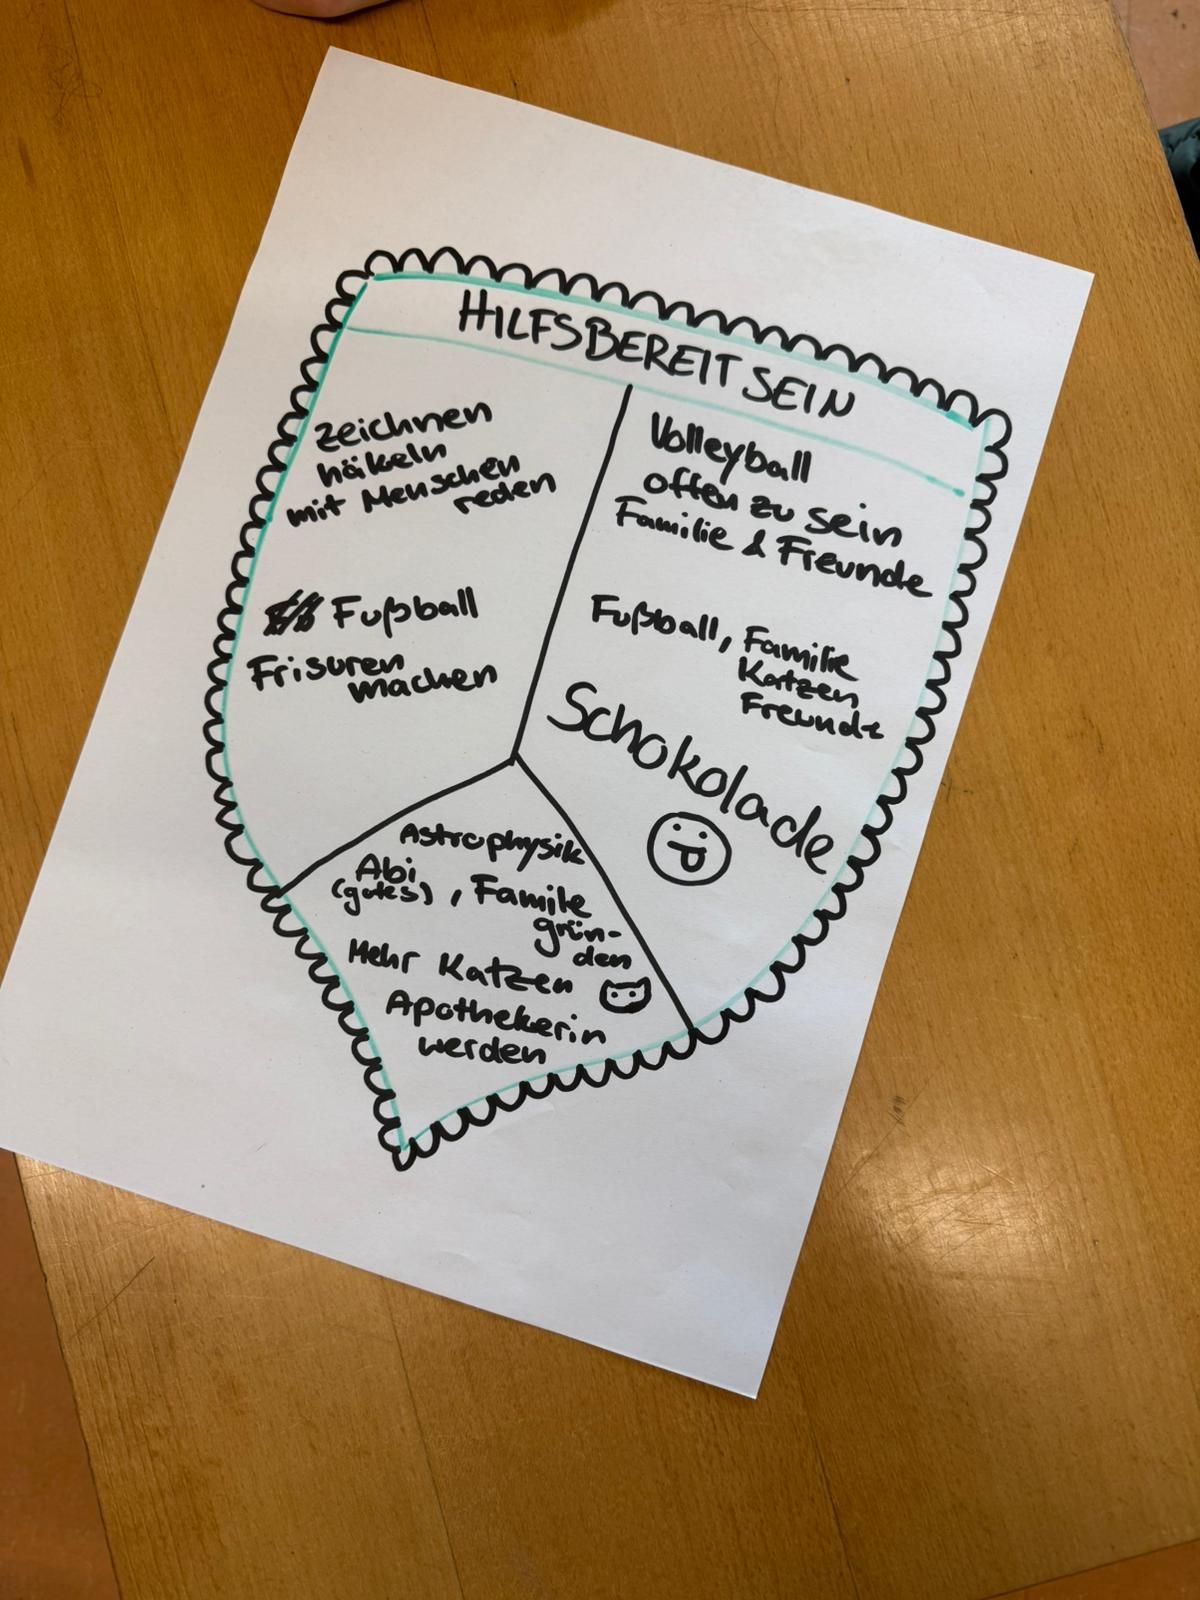 HILFSBEREIT SEIN
zeichnen
häkeln
mit Menschen
reden
Fußball
Frisuren
machen
Volleyball
offen zu sein
Familie & Freunde
Fußball, Familie
Katzen
Freunde
Schokolade
Astrophysik
Abi
(gutes), Familie
grün-
den
Mehr Katzen
Apothekerin
werden